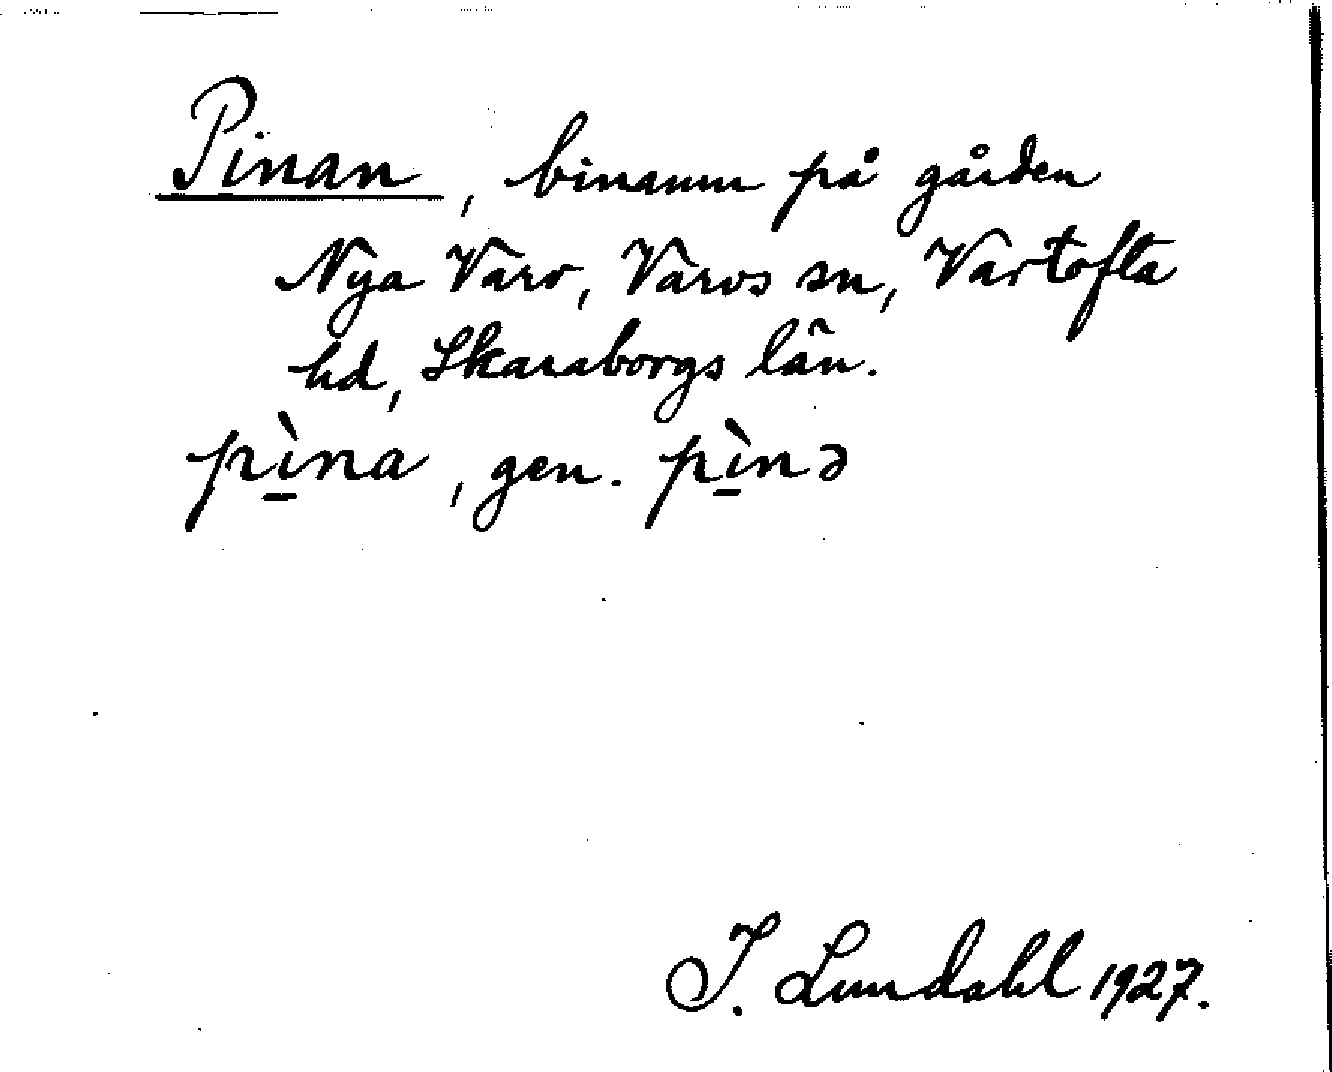 Pinan, binamn på gården
Nya Varv, Varvs sn, Vartofta
hd, Skaraborgs län.
pı̱̀na, gen. pı̱̀nə
I. Lundahl 1927.